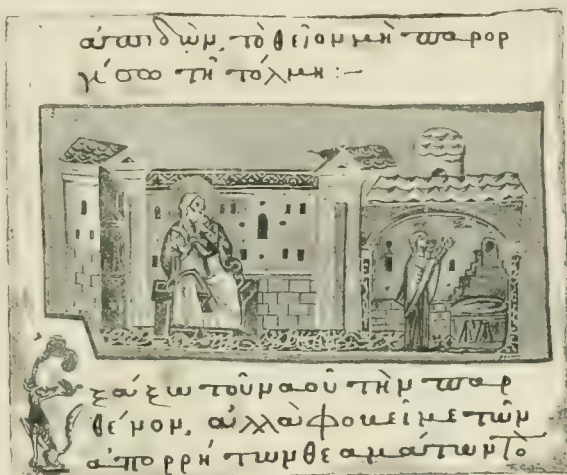 ἀπιδὼν, τὸ θεῖον μὴ παρορ
γίσω τῆ τόλμη :–
Ἐξάξω τοῦ ναοῦ τὴν παρ
θένον, ἀλλὰ φοκεῖ με τῶν
ἀπορρήτων θεαμάτων τὸ